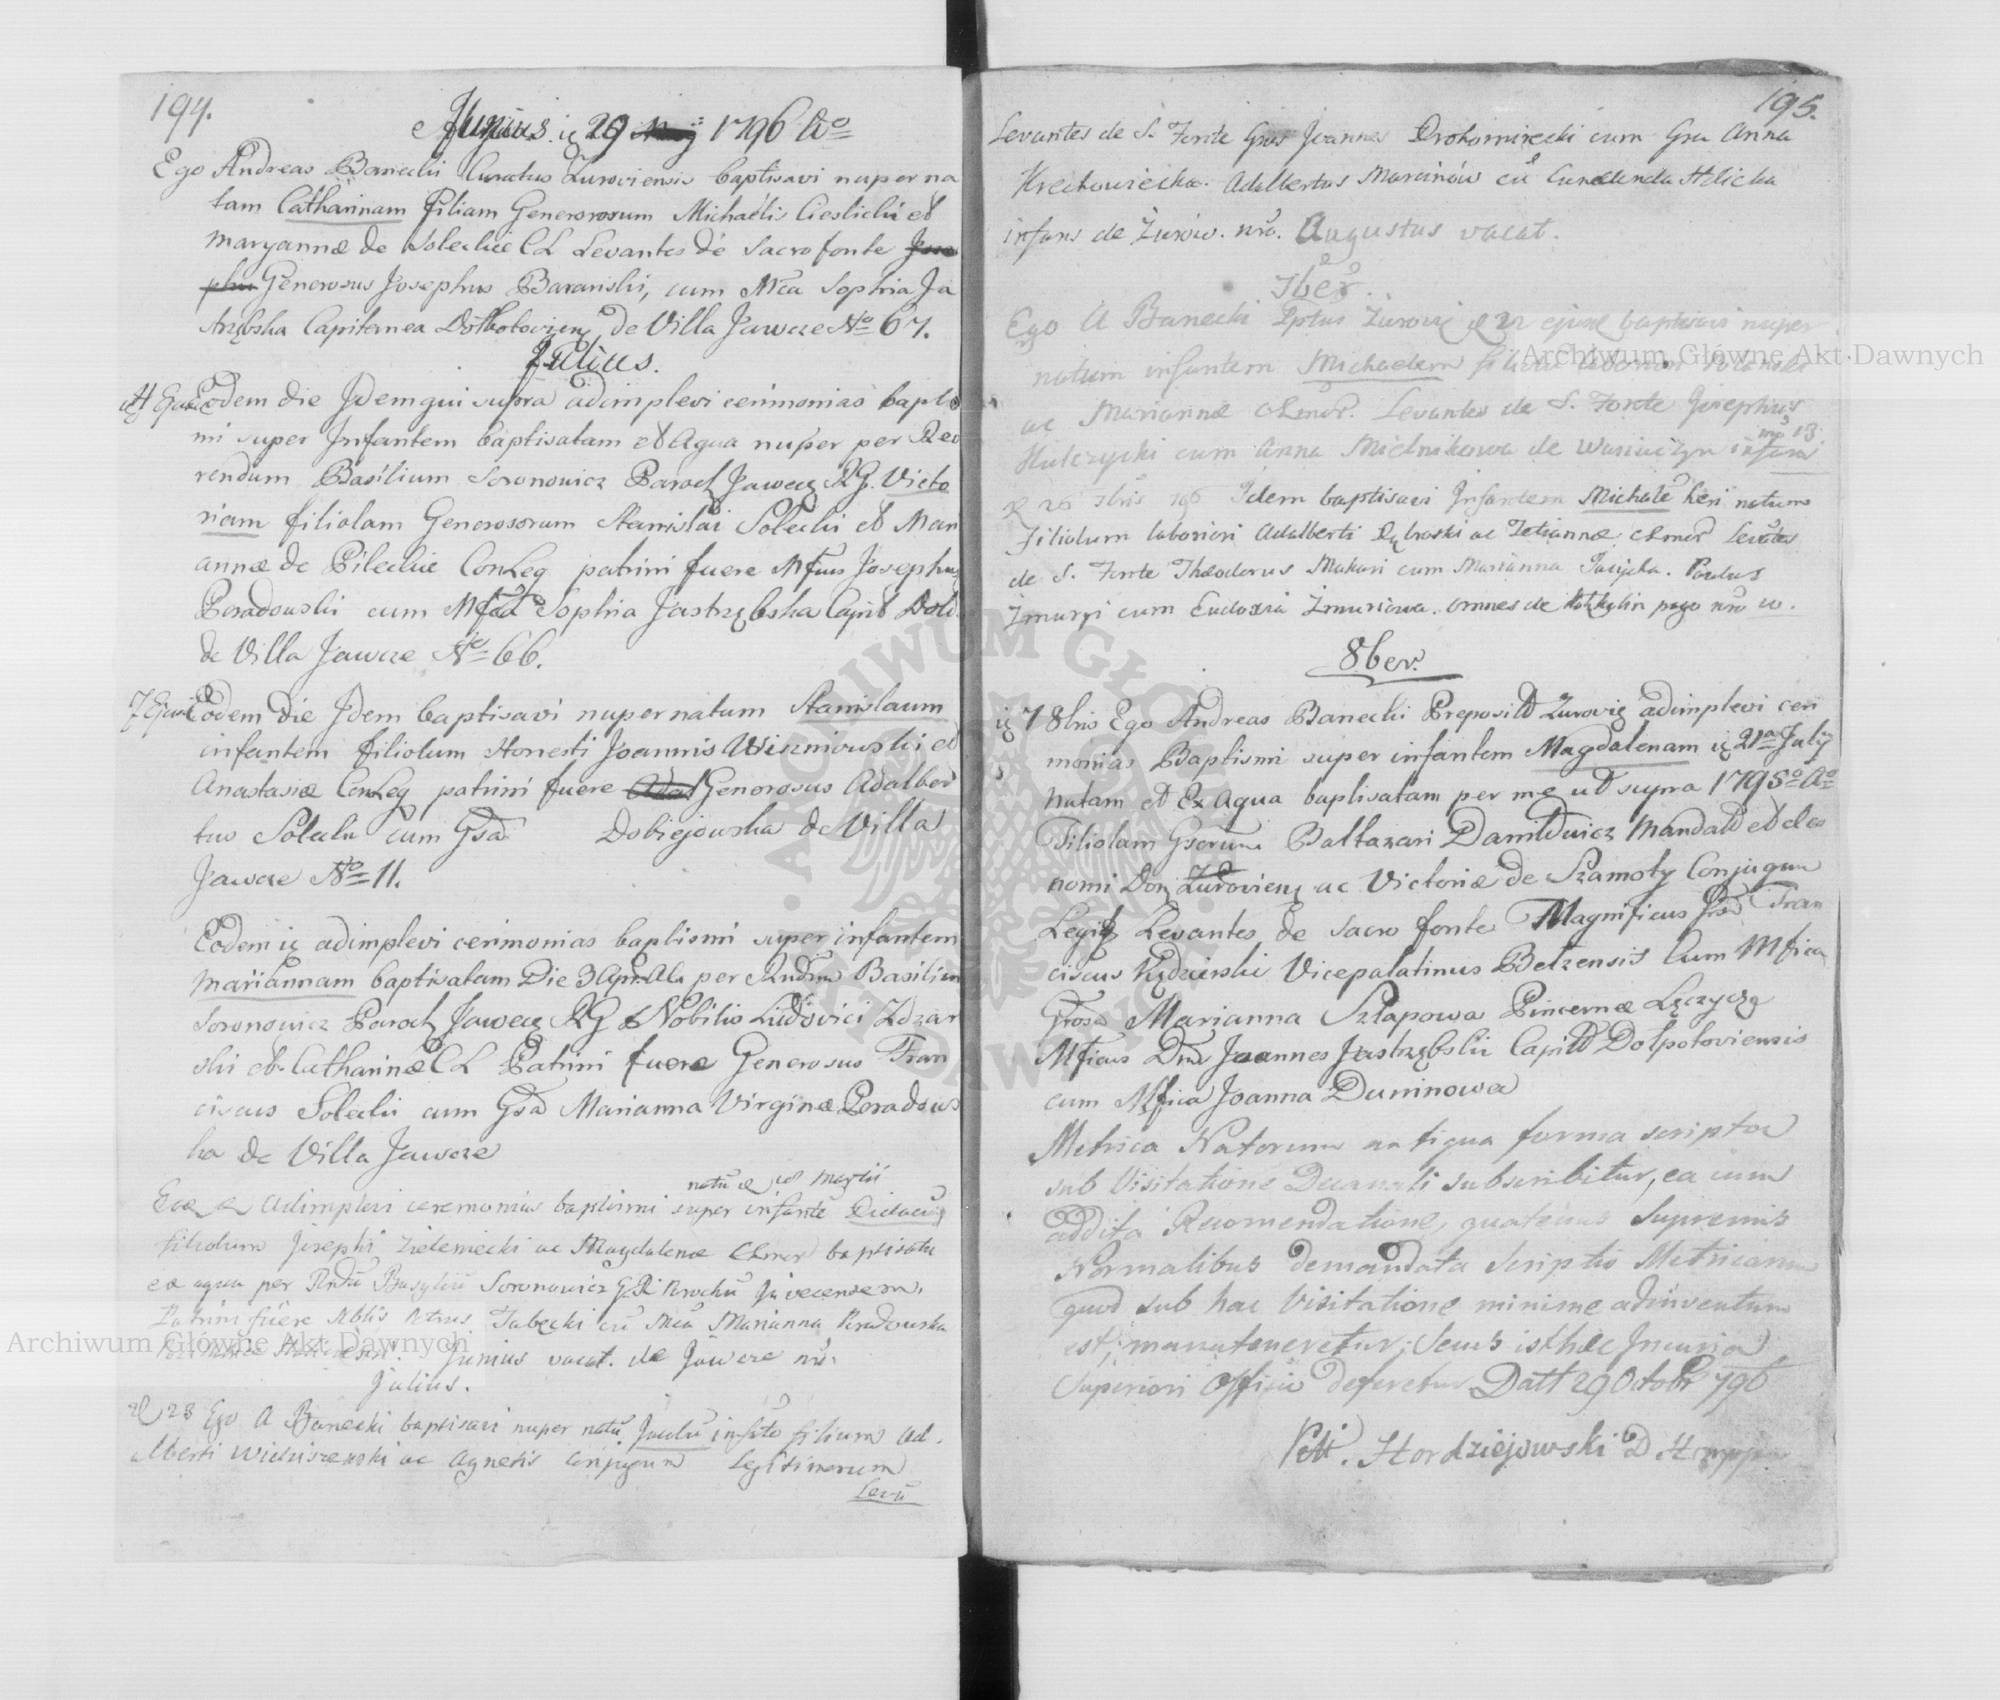 194.
Junius. 29 1796 Ao
Ego Andreas Banecki Curatus Zuroviensis baptisavi nuper na
tam Catharinam Filiam Generorosum Michaelis Cieslicki et
Maryannæ de Soleckie CL Levantes de Sacro fonte
Generosus Josephus Baranski, cum Mca Sophia Ja
strzębska Capitanea de Villa Jawcze No 67.
Julius.
Eodem die Idem qui supra adimplevi cerimonias baptis
mi super Infantem baptisatam ex Aqua nuper per Reve
rendum Basilium Soronowicz Paroch Jawecz RG. Victo
riam filiolam Generosorum Stanislai Solecki et Mari
annæ de Pileckie ConLeg patrini fuere Mfcus Josephus
Poradowski cum Mfca Sophia Jastrzębska Capit
de Villa Jawcze No 66.
7 Eodem Die Idem baptisavi nuper natum Stanislaum
infantem filiolum Honesti Joannis Wiszniowski et
Anastasiæ ConLeg patrini fuere Generosus Adalber
tus Solecki cum Gsa Dobiejowska de Villa
Jawcze No 11.
Eodem adimplevi cerimonias baptismi super infantem
Mariannam baptisatam Die 3 per Rndum Basilium
Soronowicz Paroch Jawecz RG Nobilis Ludovici Zdzar
ski et Catharinæ CL Patrini fuere Generosus Fran
ciscus Solecki cum Gsa Marianna Virginæ Poradows
ka de Villa Jawcze
Martii
adimplevi ceremonias baptismi super infante
filiolum Josephi Zieleniecki ac Magdalenæ baptisatu
ex aqua per Rndu Basyliu Soronowicz Parochu Javecensem,
Patrini fuere Nblis Petrus cu Mca Marianna Poradowska
Junius vacat. de Jawcze nro.
Julius.
28 Ego A Banecki baptisavi nuper natu filium Ad-
alberti ac Agnetis Conjugum Legitimorum
Levū
195.
Levantes de S. Fonte Gros Joannes Drohomirecki cum Gra Anna
Krechowiecka. Adalbertus Marcinów cū Hlicka
infans de Zurów. nro. Augustus vacat.
7ber.
Ego A Banecki Pptus Zurovi 22 ejusd baptisavi nuper
natum infantem Michaelem
ac Mariannæ Levantes de S. Fonte Josephus
Hulczycki cum Anna Mielnikowa de infans nro 13.
26 7bris 796 Idem baptisavi Infantem Michale heri natum
Filiolum laboriosi Adalberti ac Tetiannæ Levātes
de S. Fonte Theodorus Makari cum Marianna Paulus
Zmurzi cum Eudoxia Zmurzowa. omnes de pago nro 10.
8ber.
7 8bris Ego Andreas Banecki Preposit Zurovi adimplevi ceri
monias Baptismi super infantem Magdalenam 21a July
natam et Ex Aqua baptisatam per me ut supra 1795o Ao
Filiolam Gserum Baltazari Danilewicz Mandat et eleo
nomi Don Zuroviens ac Victoriæ de Szamoty Conjugum
Legit Levantes de sacro fonte Magnificus Fran
ciscus Kędzierski Vicepalatinus Belzensis Cum Mfica
Grosa Marianna Szlapowa Pincernæ Lęczyczę
Mficus Dnus Joannes Jastrzębski Capit Dolpotoviensis
cum Mfica Joanna Duninowa
Metrica Natorum antiqua forma scripta
sub Visitatione Decanali subscribitur, ea cum
addita Recomendatione, quatenus Supremis
Normalibus demandata Scriptio Metricarum
quod sub hac Visitatione minime adinventum
est, manuteneretur; secus isthæc Incuria
Superiori Officio deferetur Datt 29 Octobr 796
Hordziejowski
Archiwum Główne Akt Dawnych
Archiwum Główne Akt Dawnych
ARCHIWUM GŁÓWNE AKT DAWNYCH